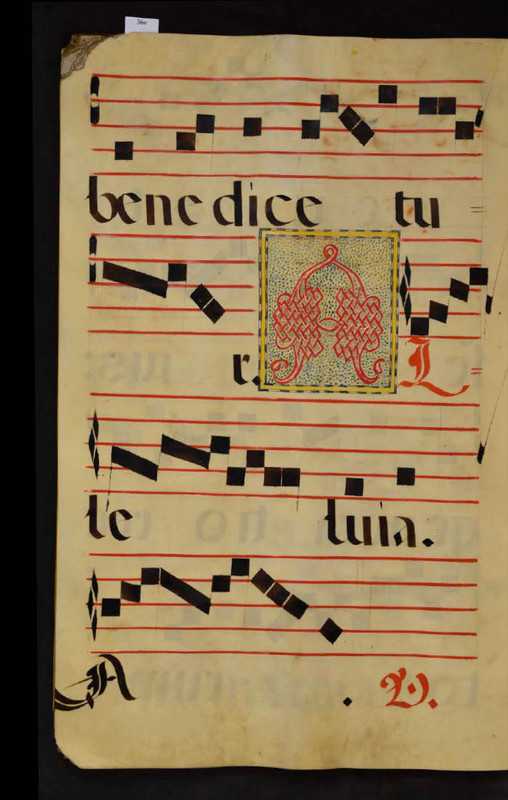 bene dice tu =
r. A L =
le luia.
A . V.